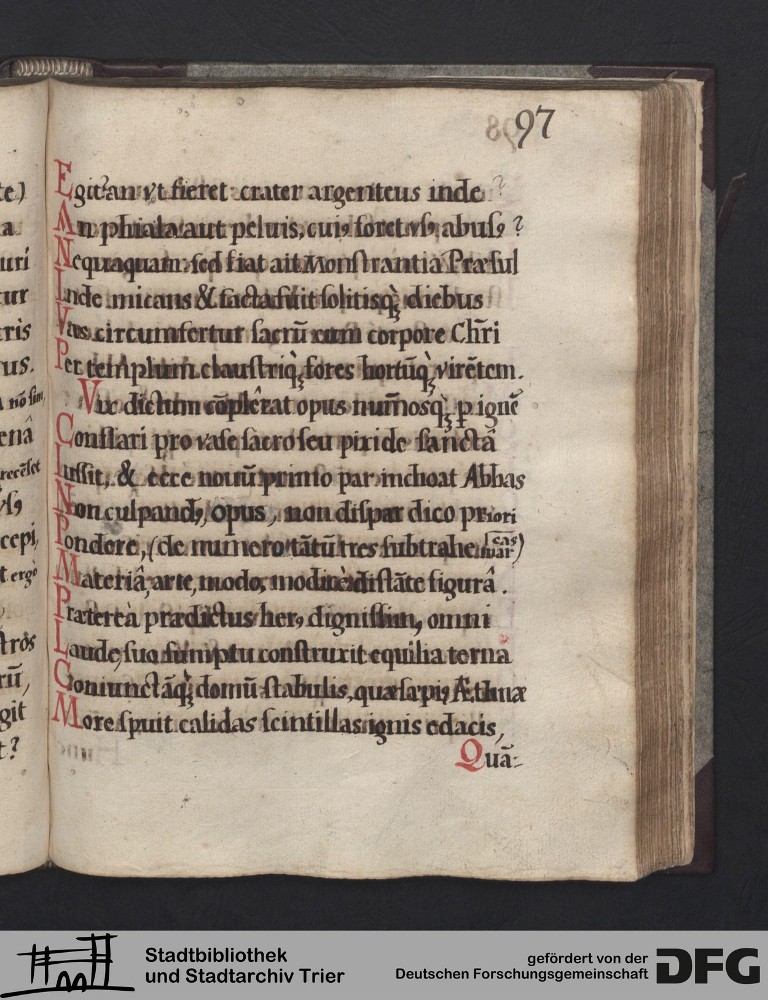 97
Egit? an vt fieret crater argenteus inde?
An phiala aut peluis, cuiꝰ foret vsꝰ, abusꝰ?
Nequaquam: sed fiat ait Monstrantia Præsul
Inde micans & facta fuit solitisq̨ diebus
Vas circumfertur sacrū cum corpore Chr̄i
Per templum claustriq̨ fores hortūq̨ virētem.
Vix dictum cōplêrat opus num̄osq̨ p ignē
Conflari pro vase sacro seu pixide sanctâ
Iussit, & ecce nouū primo par inchoat Abbas
Non culpandū, opus, non dispar dico priori
Pondere, (de numero tātū tres subtrahe
Materiâ, arte, modo, modicè distāte figurâ.
Prætereà prædictus herꝰ, dignissim, omni
Laude, suo sumptu construxit equilia terna
Coniunctāq̨ domū stabulis, quæ sæpiꝰ Æthnæ
More spuit calidas scintillas ignis edacis,
Quā-
te)
a
uri
tur
tris
us.
enâ
cepi,
t ergò
trôs
rū,
git
t?
Stadtbibliothek
und Stadtarchiv Trier
gefördert von der
Deutschen Forschungsgemeinschaft
DFG